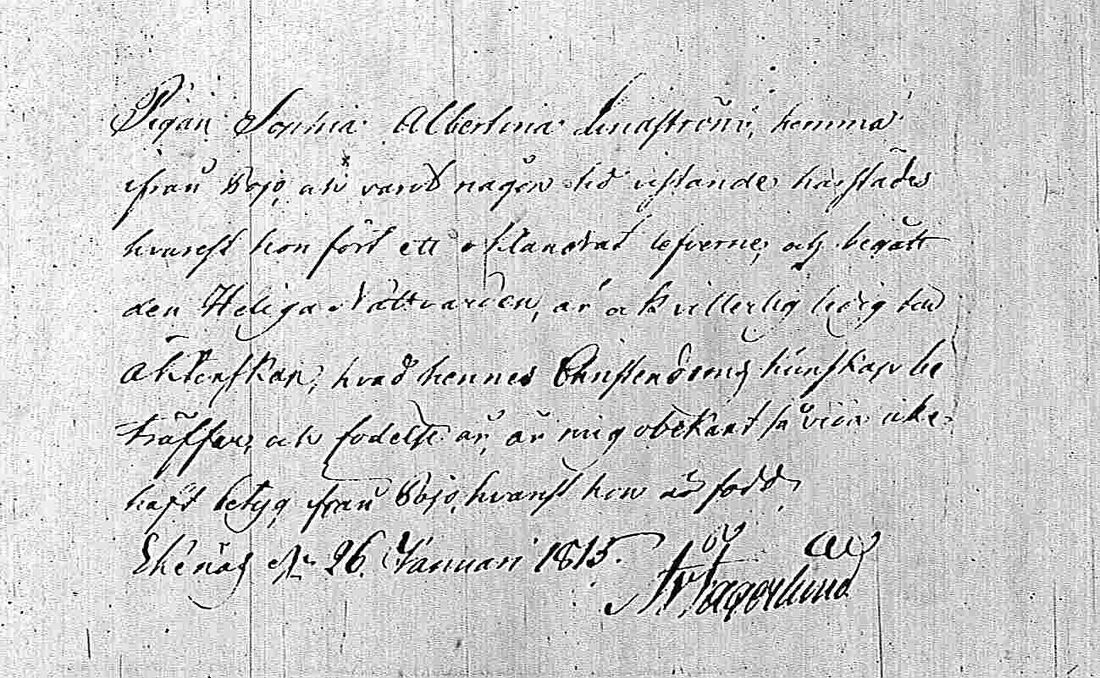 Pigan Sophia Albertina Lindström, hemma
ifrån Pojo, och varit någon tid vistande härstädes
hvarest hon fört ett oklandrat lefverne, och begått
den Heliga Nattvarden, är och villerlig ledig till
Äktenskap, hvad hennes Christendoms kunskap be
träffar, och födelse år, är mig obekant så vida icke
haft betyg ifrån Pojo, hvarest hon är född,
Ekenäs d. 26 Januari 1815.
Fagerlund